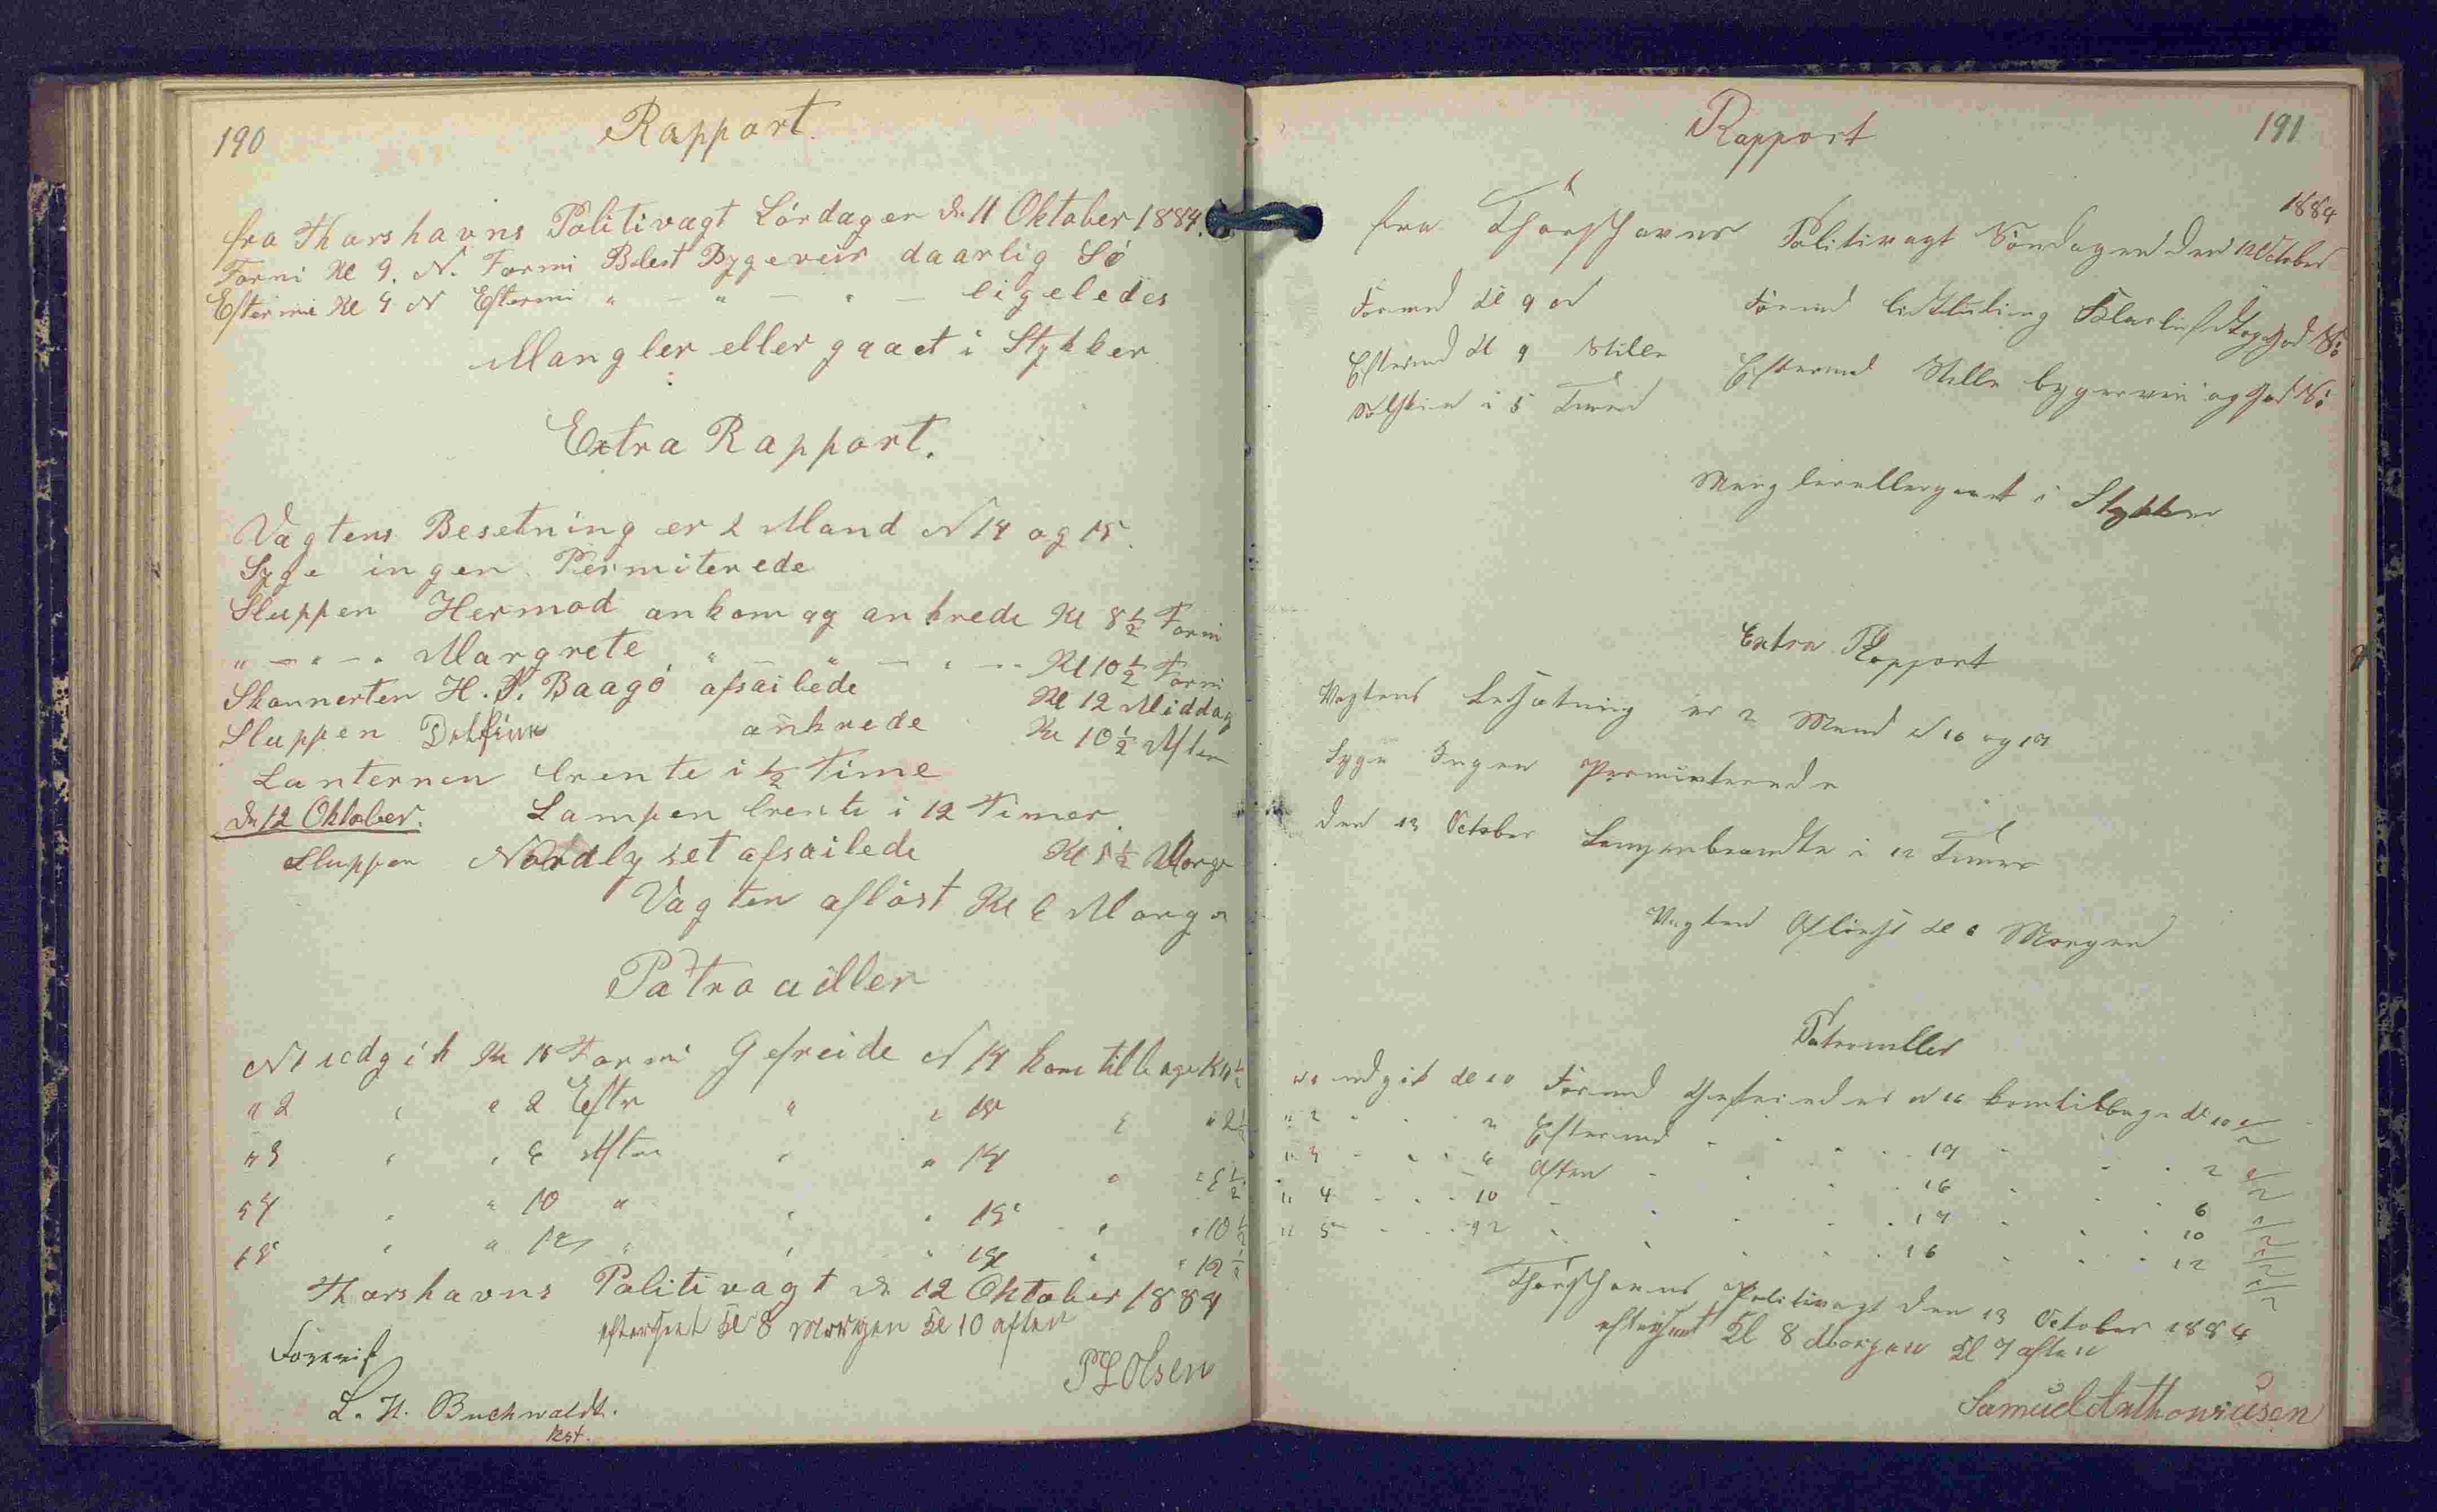 190
Rapport.
fra Thorshavns Politivagt Lördagen d. 11 Oktober 1884.
Formi Kl 9. N. Formi Blest Bygeveir daarlig Sö
Eftermi Kl 9 N Eftermi " — " — " — ligeledes
Mangler eller gaaet i Stykker
Extra Rapport.
Vagtens Besetning er 2 Mand N 14 og 15.
Syge ingen Permiterede
Sluppen Hermod ankom og ankrede Kl 8 1/2 Formi
" — " — " Margrete " — " — " — Kl 10 1/2 Formi
Skonnerten H. P. Baagö afsailede Kl 12 Middag
Sluppen Delfinen ankrede Kl 10 1/2 Aften
Lanternen brente i 1/2 Time
d. 12 Oktober. Lampen brente i 12 Timer
Sluppen Nordlyset afsailede Kl 5 1/2 Morge
Vagten aflöst Kl 6 Morge
Patroailler
N 1 udgik Kl 10 Formi Gefreide N 14 kom tilbage Kl 10 1/2
" 2 " " 2 Efter " " 15 " " 2 1/2
" 3 " " 6 Aften " " 14 " " 6 1/2
" 4 " " 10 " " " 15 " " 10 1/2
" 5 " " 12 " " " 14 " " 12 1/2
Thorshavns Politivagt d. 12 Oktober 1884
efterseet Kl 8 Morgen Kl 10 aften
Forevist
P Olsen
L. H. Buchwaldt.
kst.
191
Rapport
1884
fra Thorshavns Politivagt Söndagen den 12 October
Formd Kl 9 N Formd
Eftermd Kl 9 Stille Eftermd Stille bygeveir og god Sö
Solskin i 5 Timer
Mangler eller gaaet i Stykker
Extra Rapport
Vagtens Besætning er 2 Mand N 16 og 17
Syge Ingen Permiterede
den 13 October Lampen brændte i 12 Timer
Vagten Aflöst Kl 6 Morgen
Patroueller
N 1 udgik Kl 10 Formd Gefreider N 16 kom tilbage Kl 10 1/2
" 2 " " 2 Eftermd " " 17 " " 2 1/2
" 3 " " 6 Aften " " 16 " " 6 1/2
" 4 " " 10 " " " 17 " " 10 1/2
" 5 " " 12 " " " 16 " " 12 1/2
Thorshavns Politivagt den 13 October 1884
efterseet Kl 8 Morgen Kl 7 aften
Samuel Anthoniusen